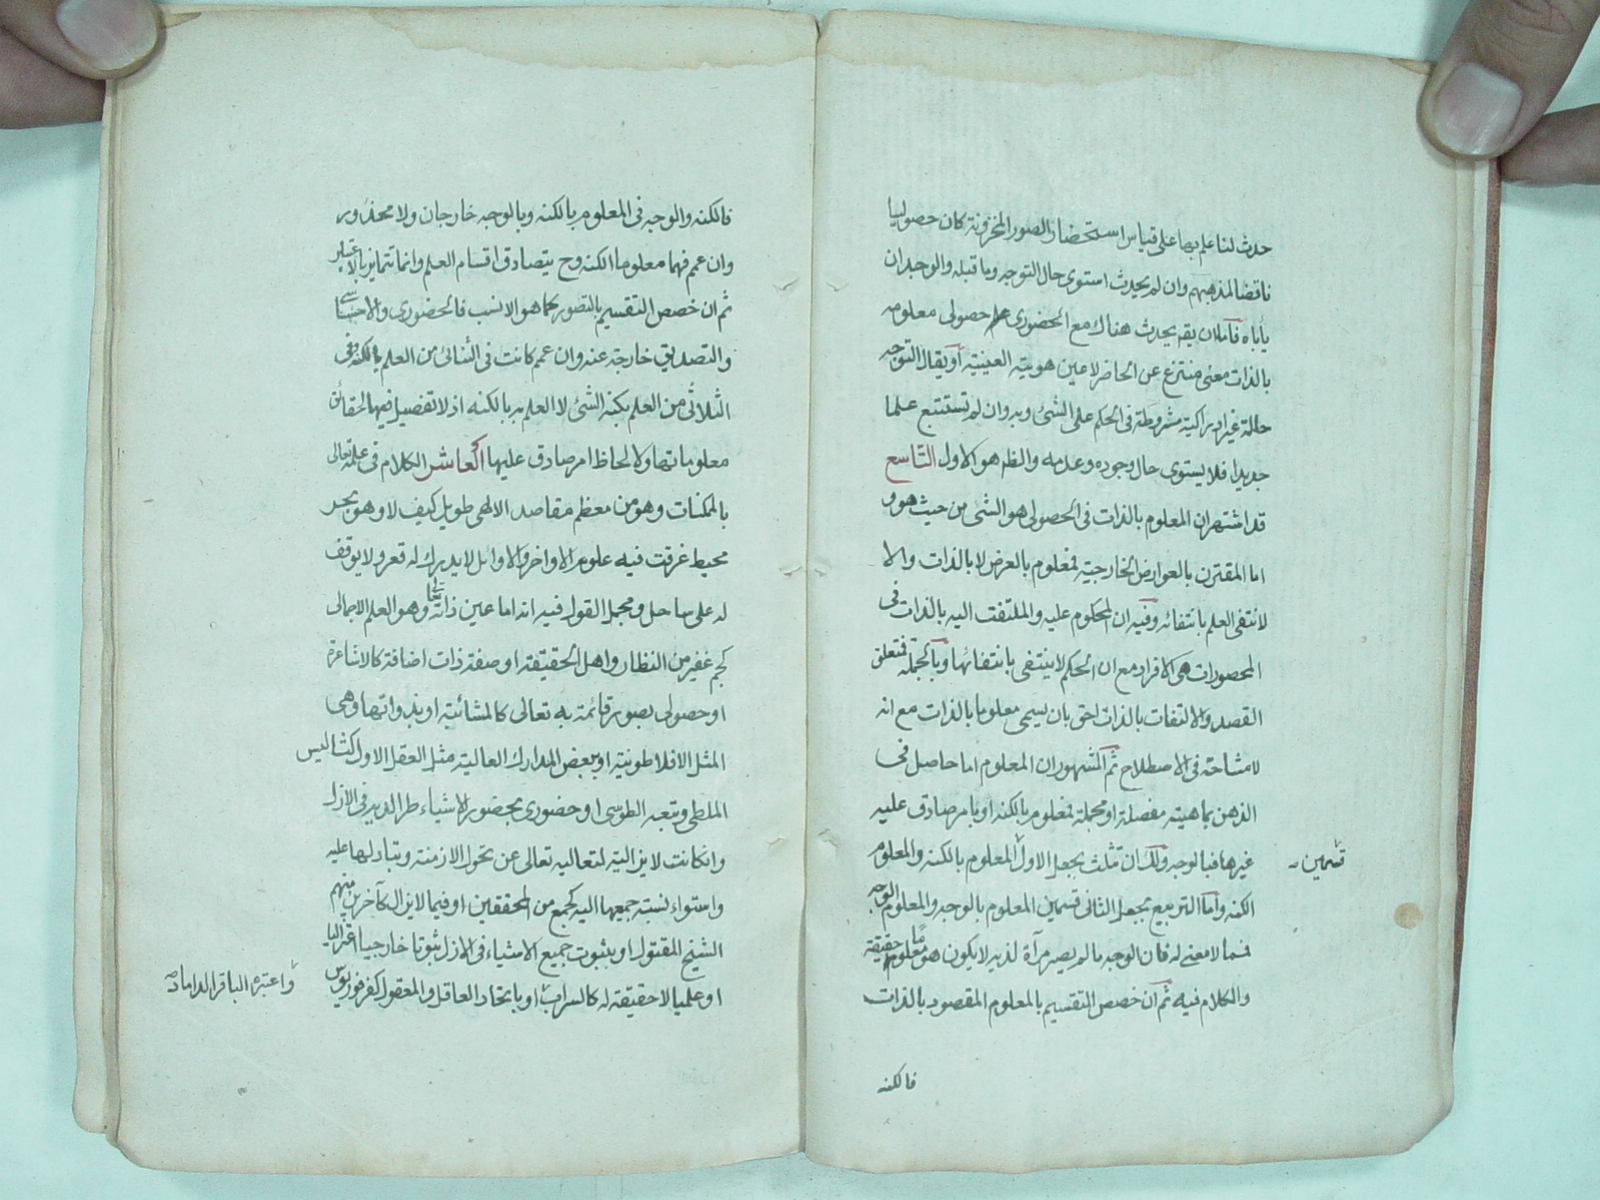 حدث لنا علم بها على قياس استحضار الصور المخزونة كان حصوليا
ناقضا لمذهبهم وان لم يحدث استوى حال التوجه وما قبله والوجدان
يأباه فآملان يقم يحدث هناك مع الحضورى حصولى معلومه
بالذات معنى منتزع عن الحاضر لا عين هويته العينية او يقال التوجه
حالة غير ادراكية مشروطة فى الحكم على الشئ وبه وان لم تستتبع علما
جديدا فلا يستوى حال وجوده وعدمه والظم هو الاول التاسع
قد اشتهر ان المعلوم بالذات فى الحصولى هو الشئ من حيث هو و
اما المقترن بالعوارض الخارجية فمعلوم بالعرض لا بالذات والا
لانتفى العلم بانتفائه وفيه ان المحكوم عليه والملتفت اليه بالذات فى
المحصورات هى الافراد مع ان الحكم لا ينتفى بانتفائها وبالجملة فتعلق
القصد والالتفات بالذات احق بان يسمى معلوما بالذات مع انه
لا مشاحة فى الاصطلاح ثم المشهور ان المعلوم اما حاصل فى
الذهن بماهيته مفصلة او مجملة فمعلوم بالكنه او بامر صادق عليه
غيرها فبالوجه ولك ان تثلث بجعل الاول المعلوم بالكنه والمعلوم
قسمين
الكنه واما التربيع بجعل الثانى قسمين المعلوم بالوجه والمعلوم الوجه
فمما لا معنى له فان الوجه ما لم يصير مرآة لذيه لا يكون هو معلوما حقيقة
والكلام فيه ثم ان خصص التقسيم بالمعلوم المقصود بالذات
فالكنه
فالكنه والوجه فى المعلوم بالكنه وبالوجه خارجان ولا محذور
وان عمم فهما معلوما الكنه وح يتصادق اقسام العلم وانما تتمايز بالاعتبار
ثم ان خصص التقسيم بالتصور كما هو الانسب فالحضورى والاحساسى
والتصديق خارجة عنه وان عمم كانت فى الثنائى من العلم بالكنه وفى
الثلاثى من العلم بكنه الشئ لا العلم به بالكنه اذ لا تفصيل فيها لحقائق
معلوماتها ولا لحاظ امر صادق عليها العاشر الكلام فى علمه تعالى
بالممكنات وهو من معظم مقاصد الالهى طويل كيف لا وهو بحر
محيط غرقت فيه علوم الاواخر والاوائل لا يدرك له قعر ولا يوقف
له على ساحل ومجمل القول فيه انه اما عين ذاته تعالى وهو العلم الاجمالى
كجم غفير من النظار واهل الحقيقة او صفة ذات اضافة كالاشاعرة
او حصولى بصور قائمة به تعالى كالمشائية او بذواتها وهى
المثل الافلاطونية او ببعض المدارك العالية مثل العقل الاول كثاليس
الملطى وتبعه الطوسى او حضورى بحضور الاشياء طرا لديه فى الازل
وان كانت لا يزالية لتعاليه تعالى عن تحول الازمنة وتبادلها عليه
واستواء نسبة جميعها اليه كجمع من المحققين او فيما لا يزال كآخرين منهم
الشيخ المقتول او بثبوت جميع الاشياء فى الازل ثبوتا خارجيا
او علميا لا حقيقة له كالسراب او باتحاد العاقل والمعقول كفرفوريوس
واعتبره الباقر الداماد